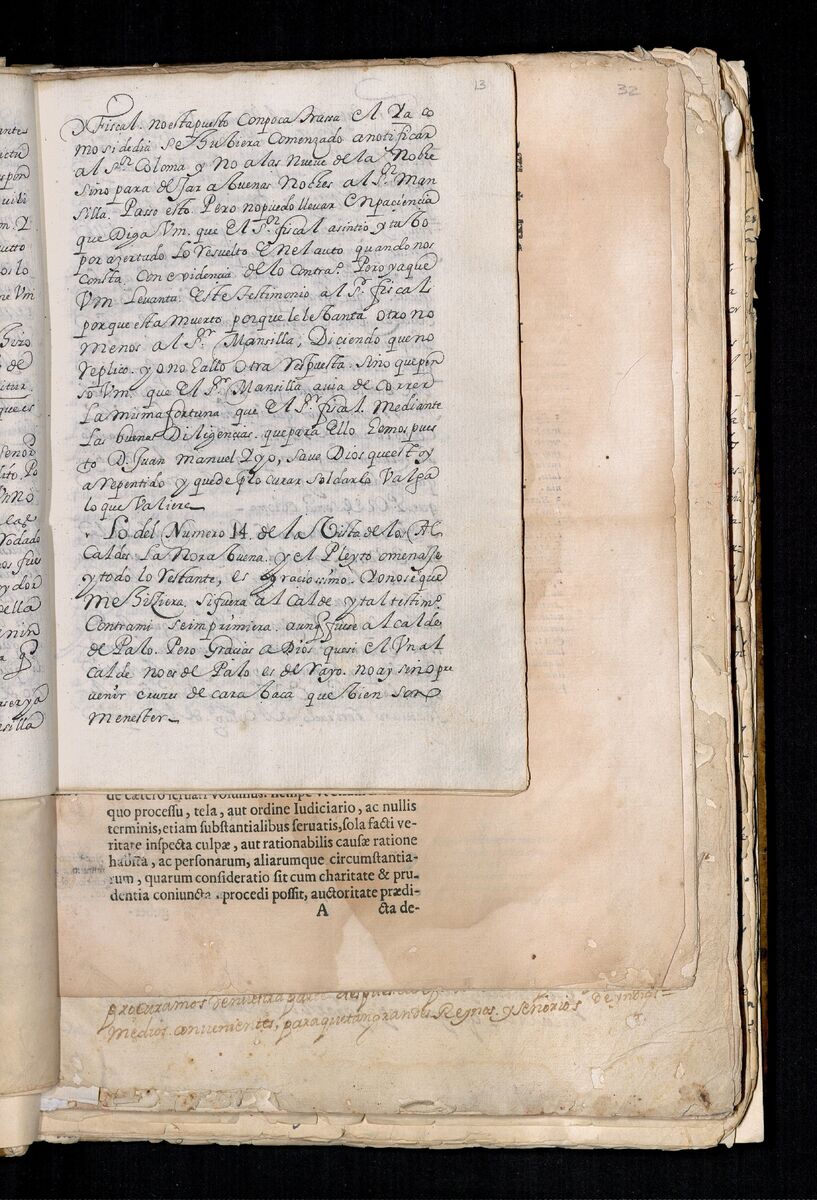 13
32
Fiscal. no esta puesto con poca grassa el Ya co
mo si de dia se hubiera Comenzado a notificar
al S.r Coloma y No a las Nueve de la Noche
sino para dejar a buenas Noches al S.r Man
silla. Passo esto. Pero no puedo llevar en paciencia
que Diga Vm. que el S.r fiscal asintio y tubo
por azertado lo Resuelto en el auto quando nos
Consta. Con evidencia de lo contra.º Pero ya que
Vm Levanta. este testimonio al S.r fiscal
porque esta muerto porque le lebanta otro no
menos al S.r Mansilla, Diciendo que no
Replico. y o no hallo otra respuesta. sino que pen
so Vm. que el S.r Mansilla avia de correr
La misma fortuna que el S.r fiscal. Mediante
Las buenas Diligencias. que para ello hemos pues
to D. Juan Manuel y yo, save Dios que estoy
arepentido y que de procurar soldarlo Valga
lo que Valiere
Lo del Numero 14. de la Vista de los Al
Caldes La Nora buena. y el Pleyto omenaje
y todo lo restante, es graciossimo. Yo no se que
me hiziera, si fuera alcalde y tal testim.º
Contra mi se imprimiera. aunq fuese alcalde
de Palo. Pero Gracias a Dios que si el Un al
calde no es de Palo es de rayo. no ay sino pre
venir cruzes de carabaca que bien son
menester
quo processu, tela, aut ordine Iudiciario, ac nullis
terminis, etiam substantialibus seruatis, sola facti ve-
ritate inspecta culpæ, aut rationabilis causæ ratione
habita, ac personarum, aliarumque circumstantia-
rum, quarum consideratio sit cum charitate & pru-
dentia coniuncta procedi possit, auctoritate prædi-
A cta de-
procuramos de nuestra parte despues
medios convenientes, para que tan grandes Reynos. y señorios